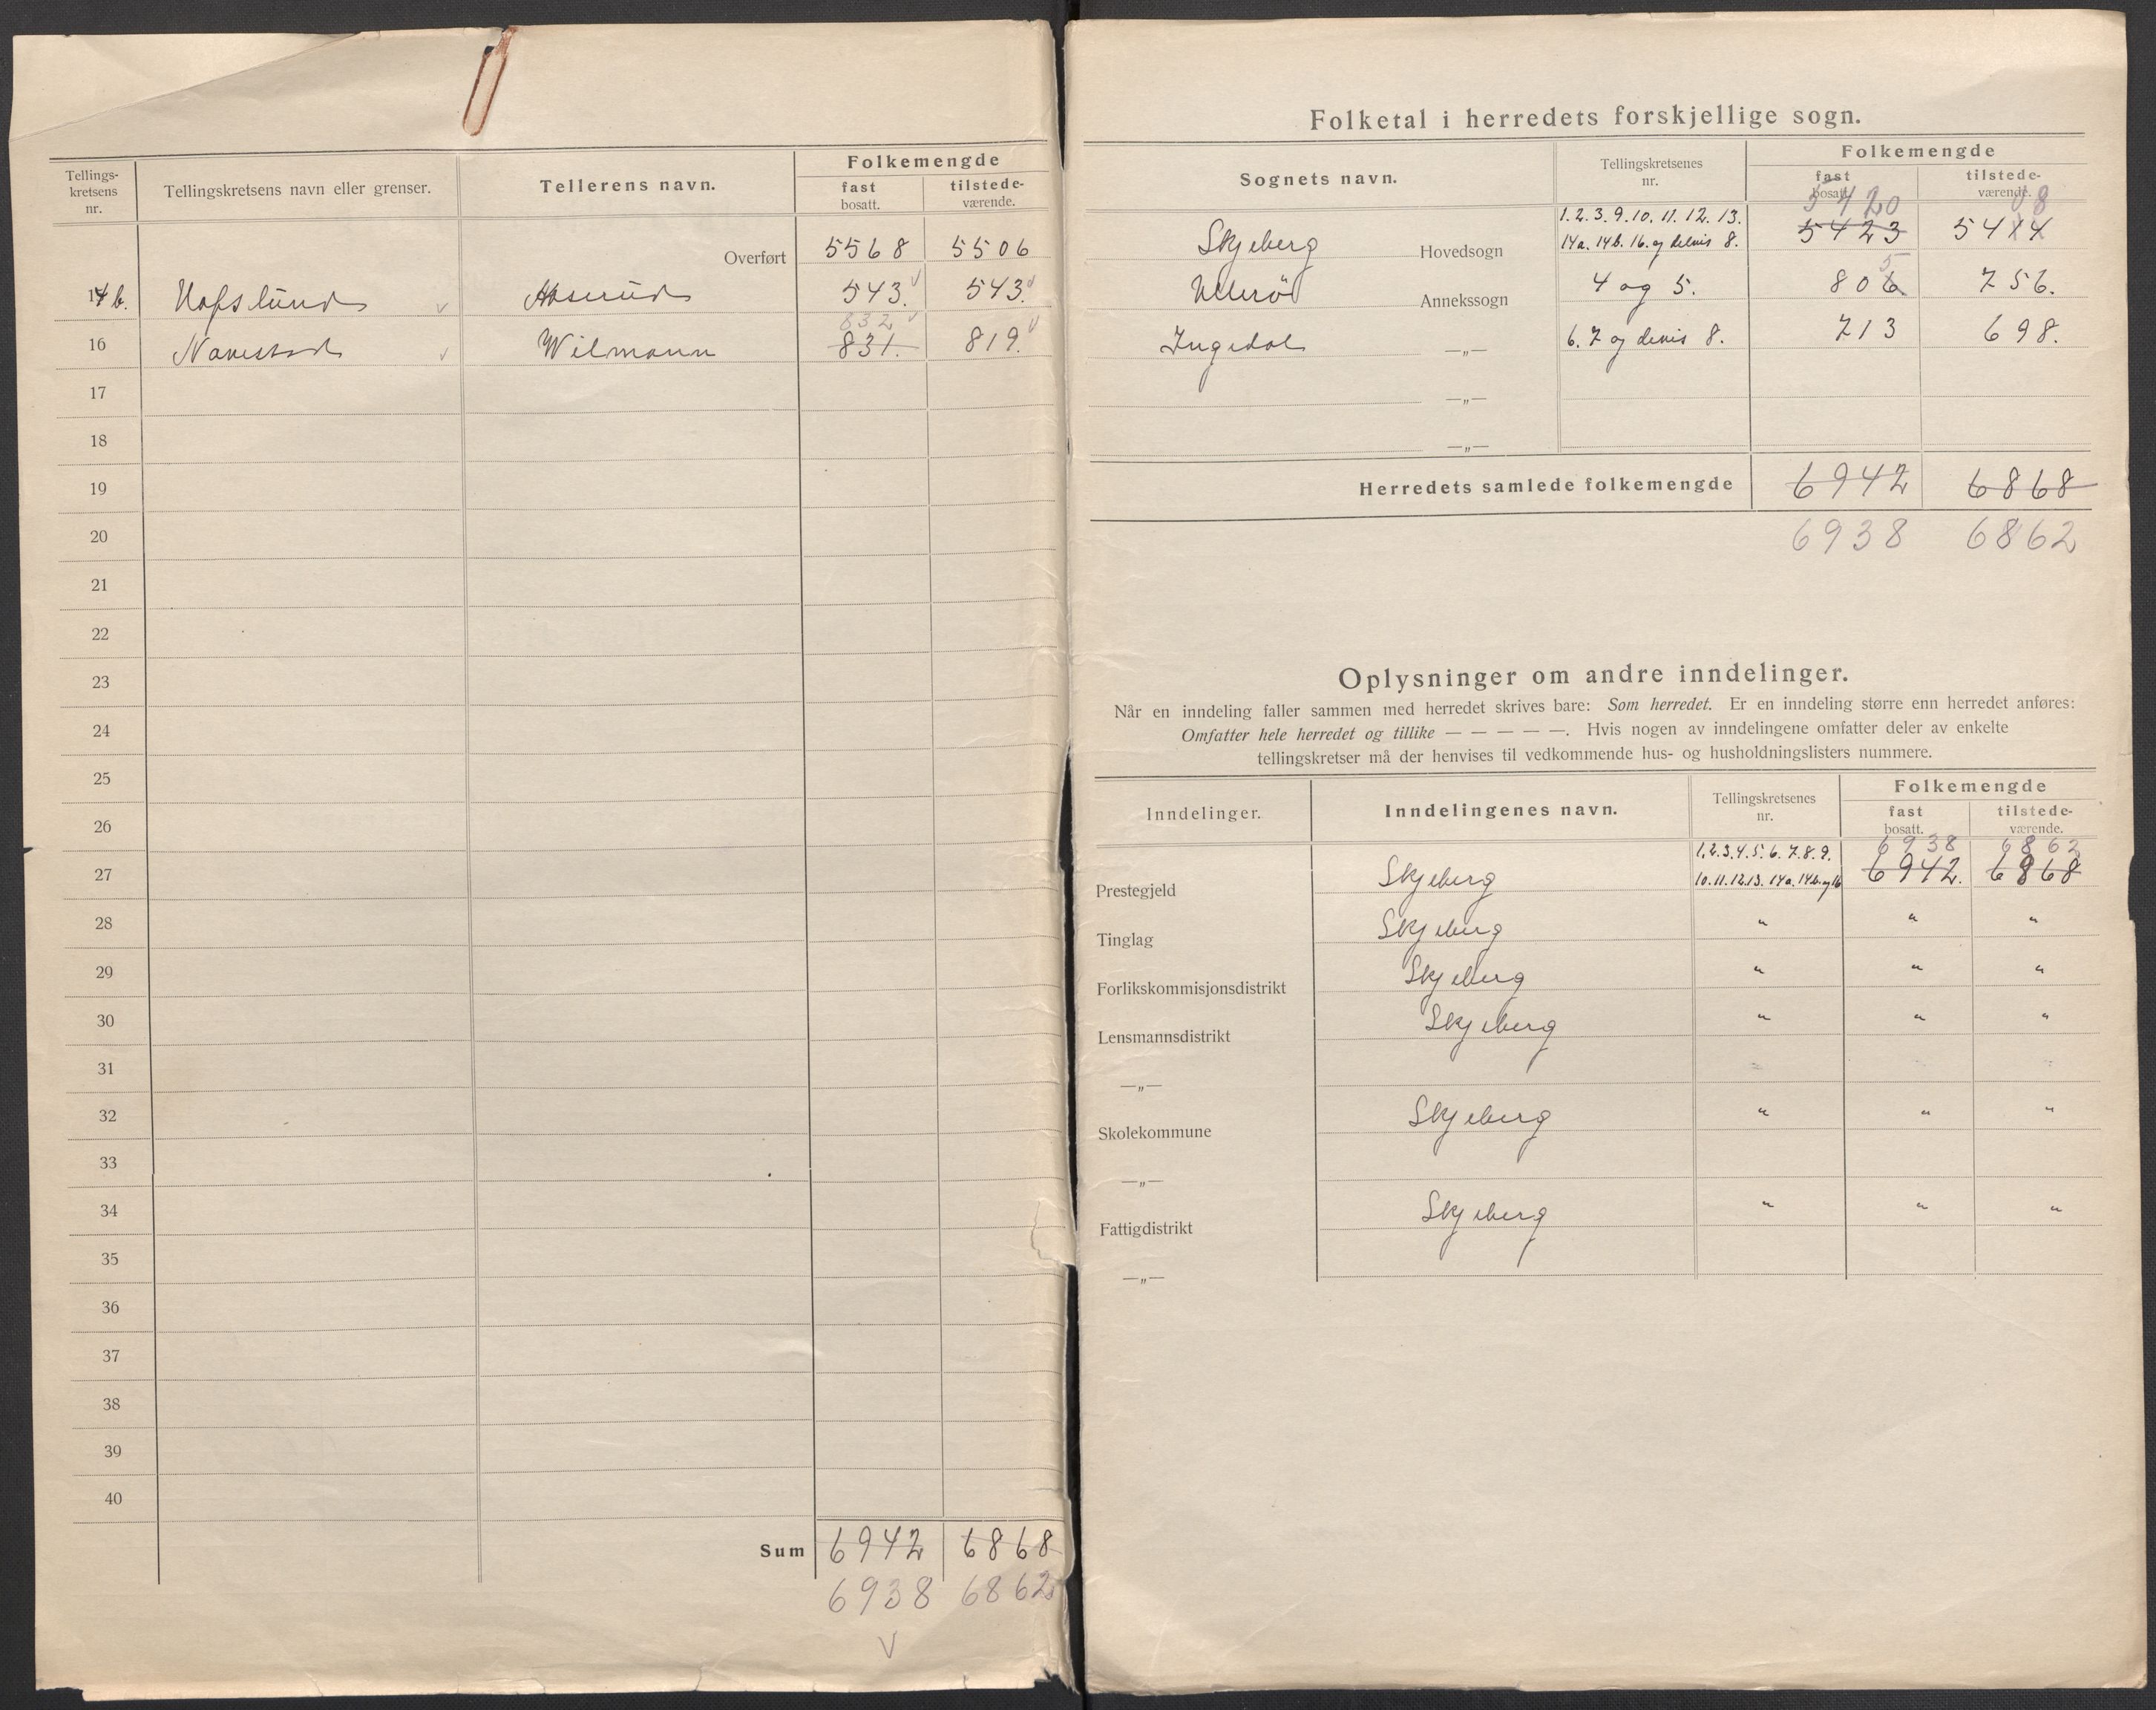 Tellings-
kretsens
nr.
Tellingskretsens navn eller grenser.
Tellerens navn.
Folkemengde
fast
bosatt.
tilstede-
værende.
Overført 5568 5506
14b. Hafslund v 543. v 543. v
832 v
16 Navestad v Wilmann 831. 819. v
17
18
19
20
21
22
23
24
25
26
27
28
29
30
31
32
33
34
35
36
37
38
39
40
Sum 6942 6868
6938 6862
V
Folketal i herredets forskjellige sogn.
Sognets navn.
Tellingskretsenes
nr.
Folkemengde
fast
bosatt.
tilstede-
værende.
5420 08
1. 2. 3. 9. 10. 11. 12. 13.
Skjeberg Hovedsogn 14a. 14b. 16. og delvis 8. 5423 5414
5
Ullerö Annekssogn 4 og 5. 806 756.
Ingedal —„— 6. 7 og delvis 8. 713 698.
—„—
—„—
Herredets samlede folkemengde 6942 6868
6938 6862
Oplysninger om andre inndelinger.
Når en inndeling faller sammen med herredet skrives bare: Som herredet. Er en inndeling større enn herredet anføres:
Omfatter hele herredet og tillike — — — — —. Hvis nogen av inndelingene omfatter deler av enkelte
tellingskretser må der henvises til vedkommende hus- og husholdningslisters nummere.
Inndelinger.
Inndelingenes navn.
Tellingskretsenes
nr.
Folkemengde
fast
bosatt.
tilstede-
værende.
1. 2. 3. 4. 5. 6. 7. 8. 9. 6938 6862
Prestegjeld Skjeberg 10. 11. 12. 13. 14a. 14b. og 16 6942. 6868
Tinglag Skjeberg " " "
Forlikskommisjonsdistrikt Skjeberg " " "
Lensmannsdistrikt Skjeberg " " "
—„—
Skolekommune Skjeberg " " "
—„—
Fattigdistrikt Skjeberg " " "
—„—